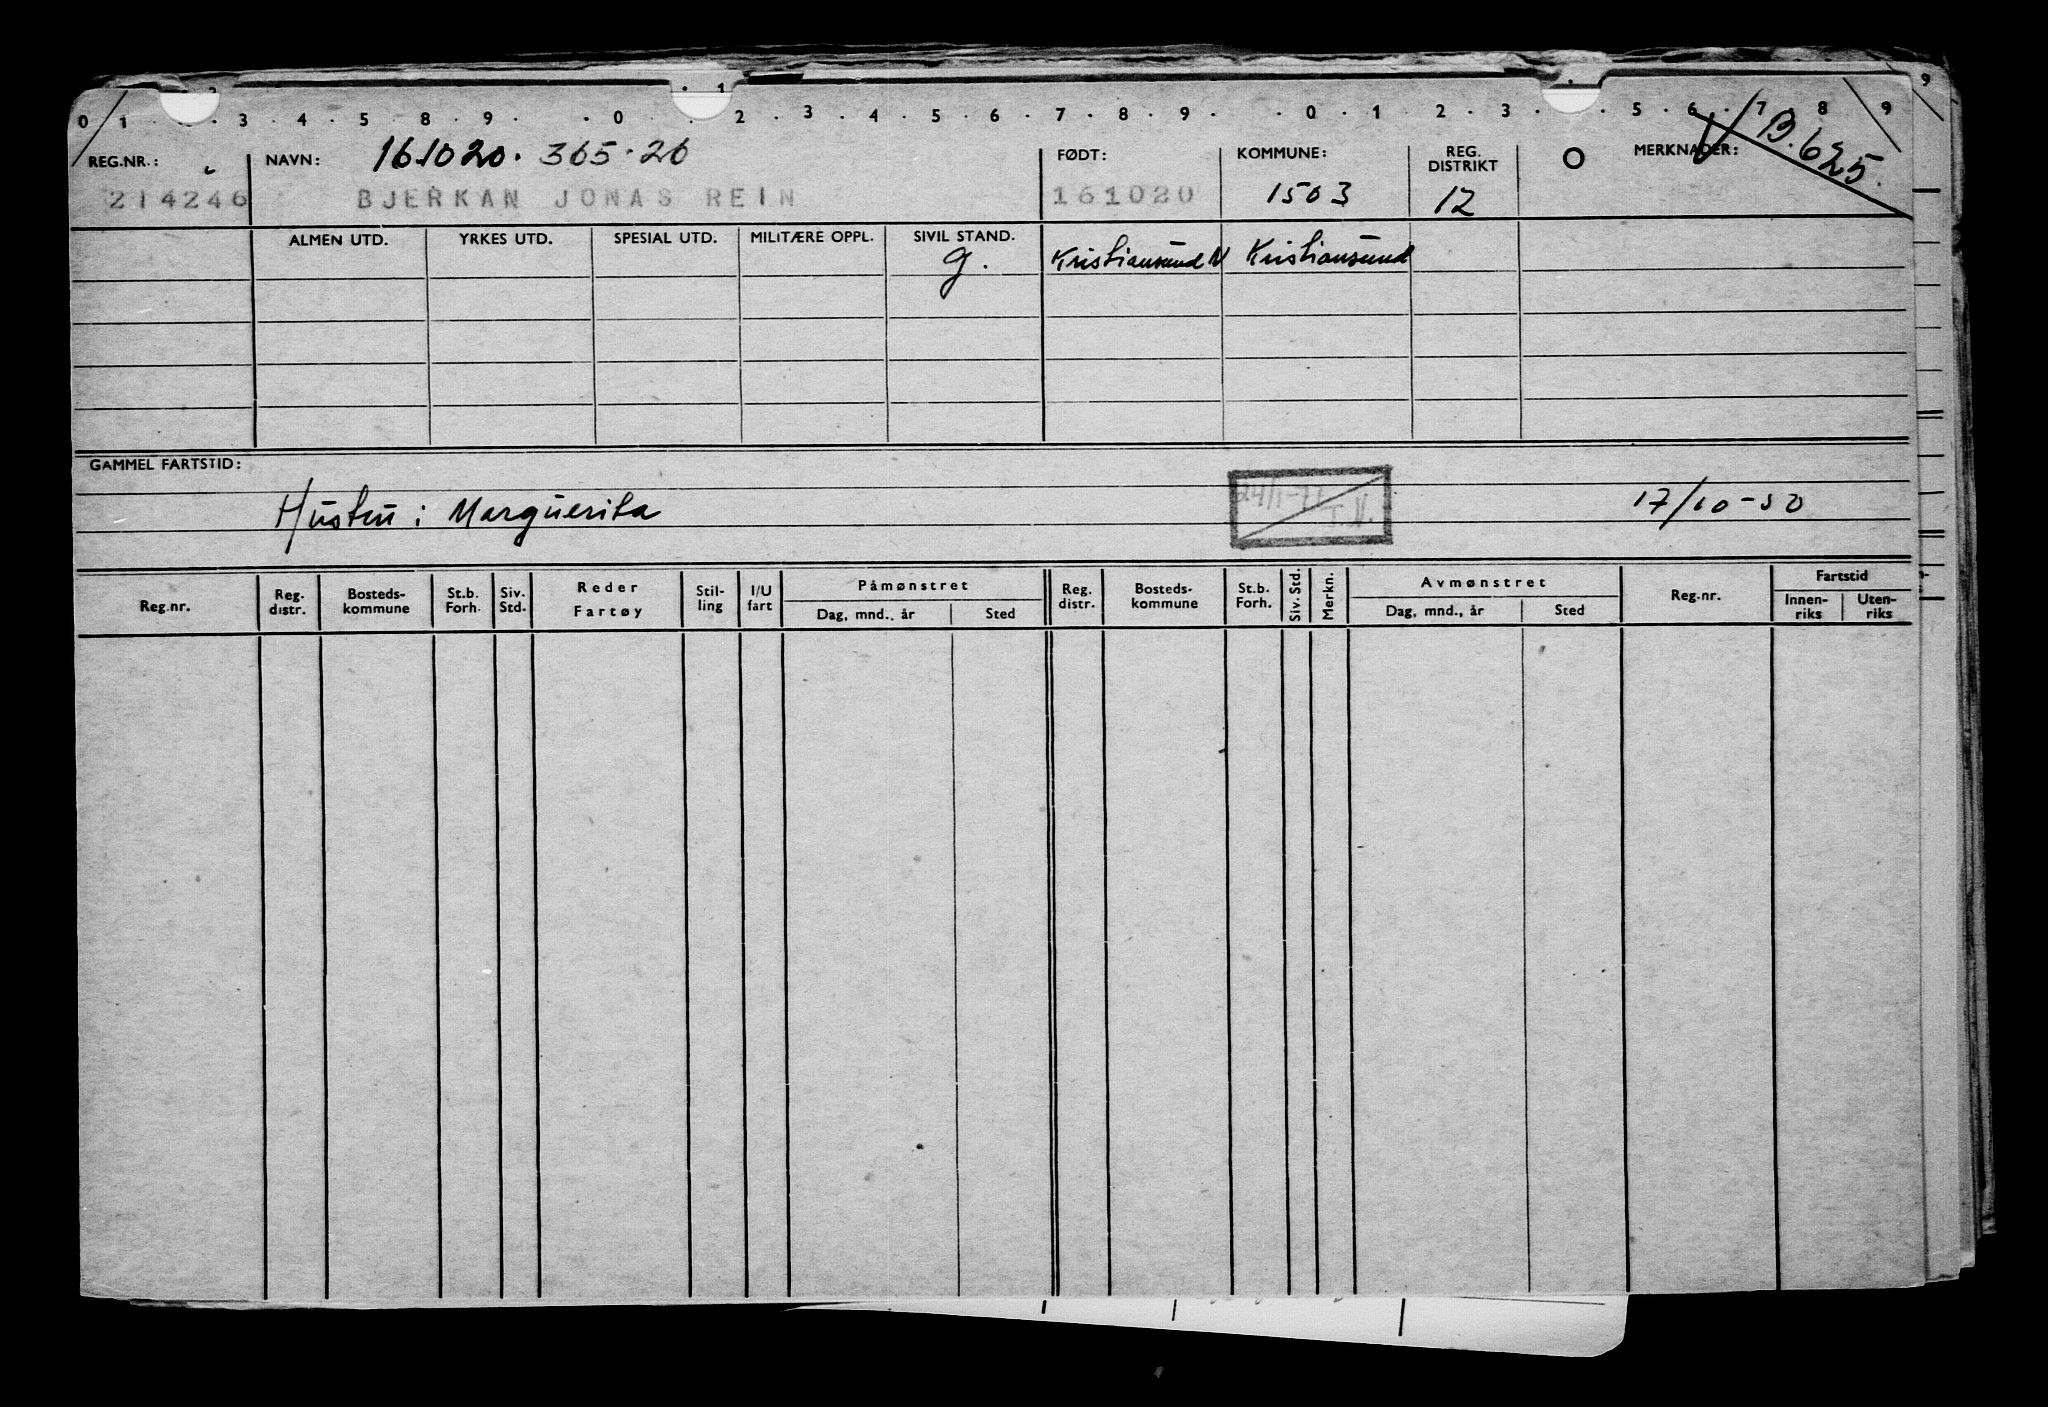 0 1 3 . 4 . 5 8 . 9 . . 0 . 1 . 2 . 3 . 4 . 5 . 6 . 7 . 8 . 9 . 0 . 1 2 . 3 . . 5 . 6 . 7 . 8 9
REG.NR.: NAVN: 161020. 365.26 FØDT: KOMMUNE: REG. DISTRIKT MERKNADER: B.625.
214246 BJERKAN JONAS REIN 161020 1503 12
ALMEN UTD. YRKES UTD. SPESIAL UTD. MILITÆRE OPPL. SIVIL STAND.
g. Kristiansund N Kristiansund
GAMMEL FARTSTID:
Hustru : Marguerita 17/10-50
Reg.nr. Reg. distr. Bosteds- kommune St.b. Forh. Siv. Std. Reder Fartøy Stil- ling I/U fart Påmønstret Reg. distr. Bosteds- kommune St.b. Forh. Siv. Std. Merkn. Avmønstret Reg.nr. Fartstid
Dag, mnd., år Sted Dag, mnd., år Sted Innen- riks Uten- riks